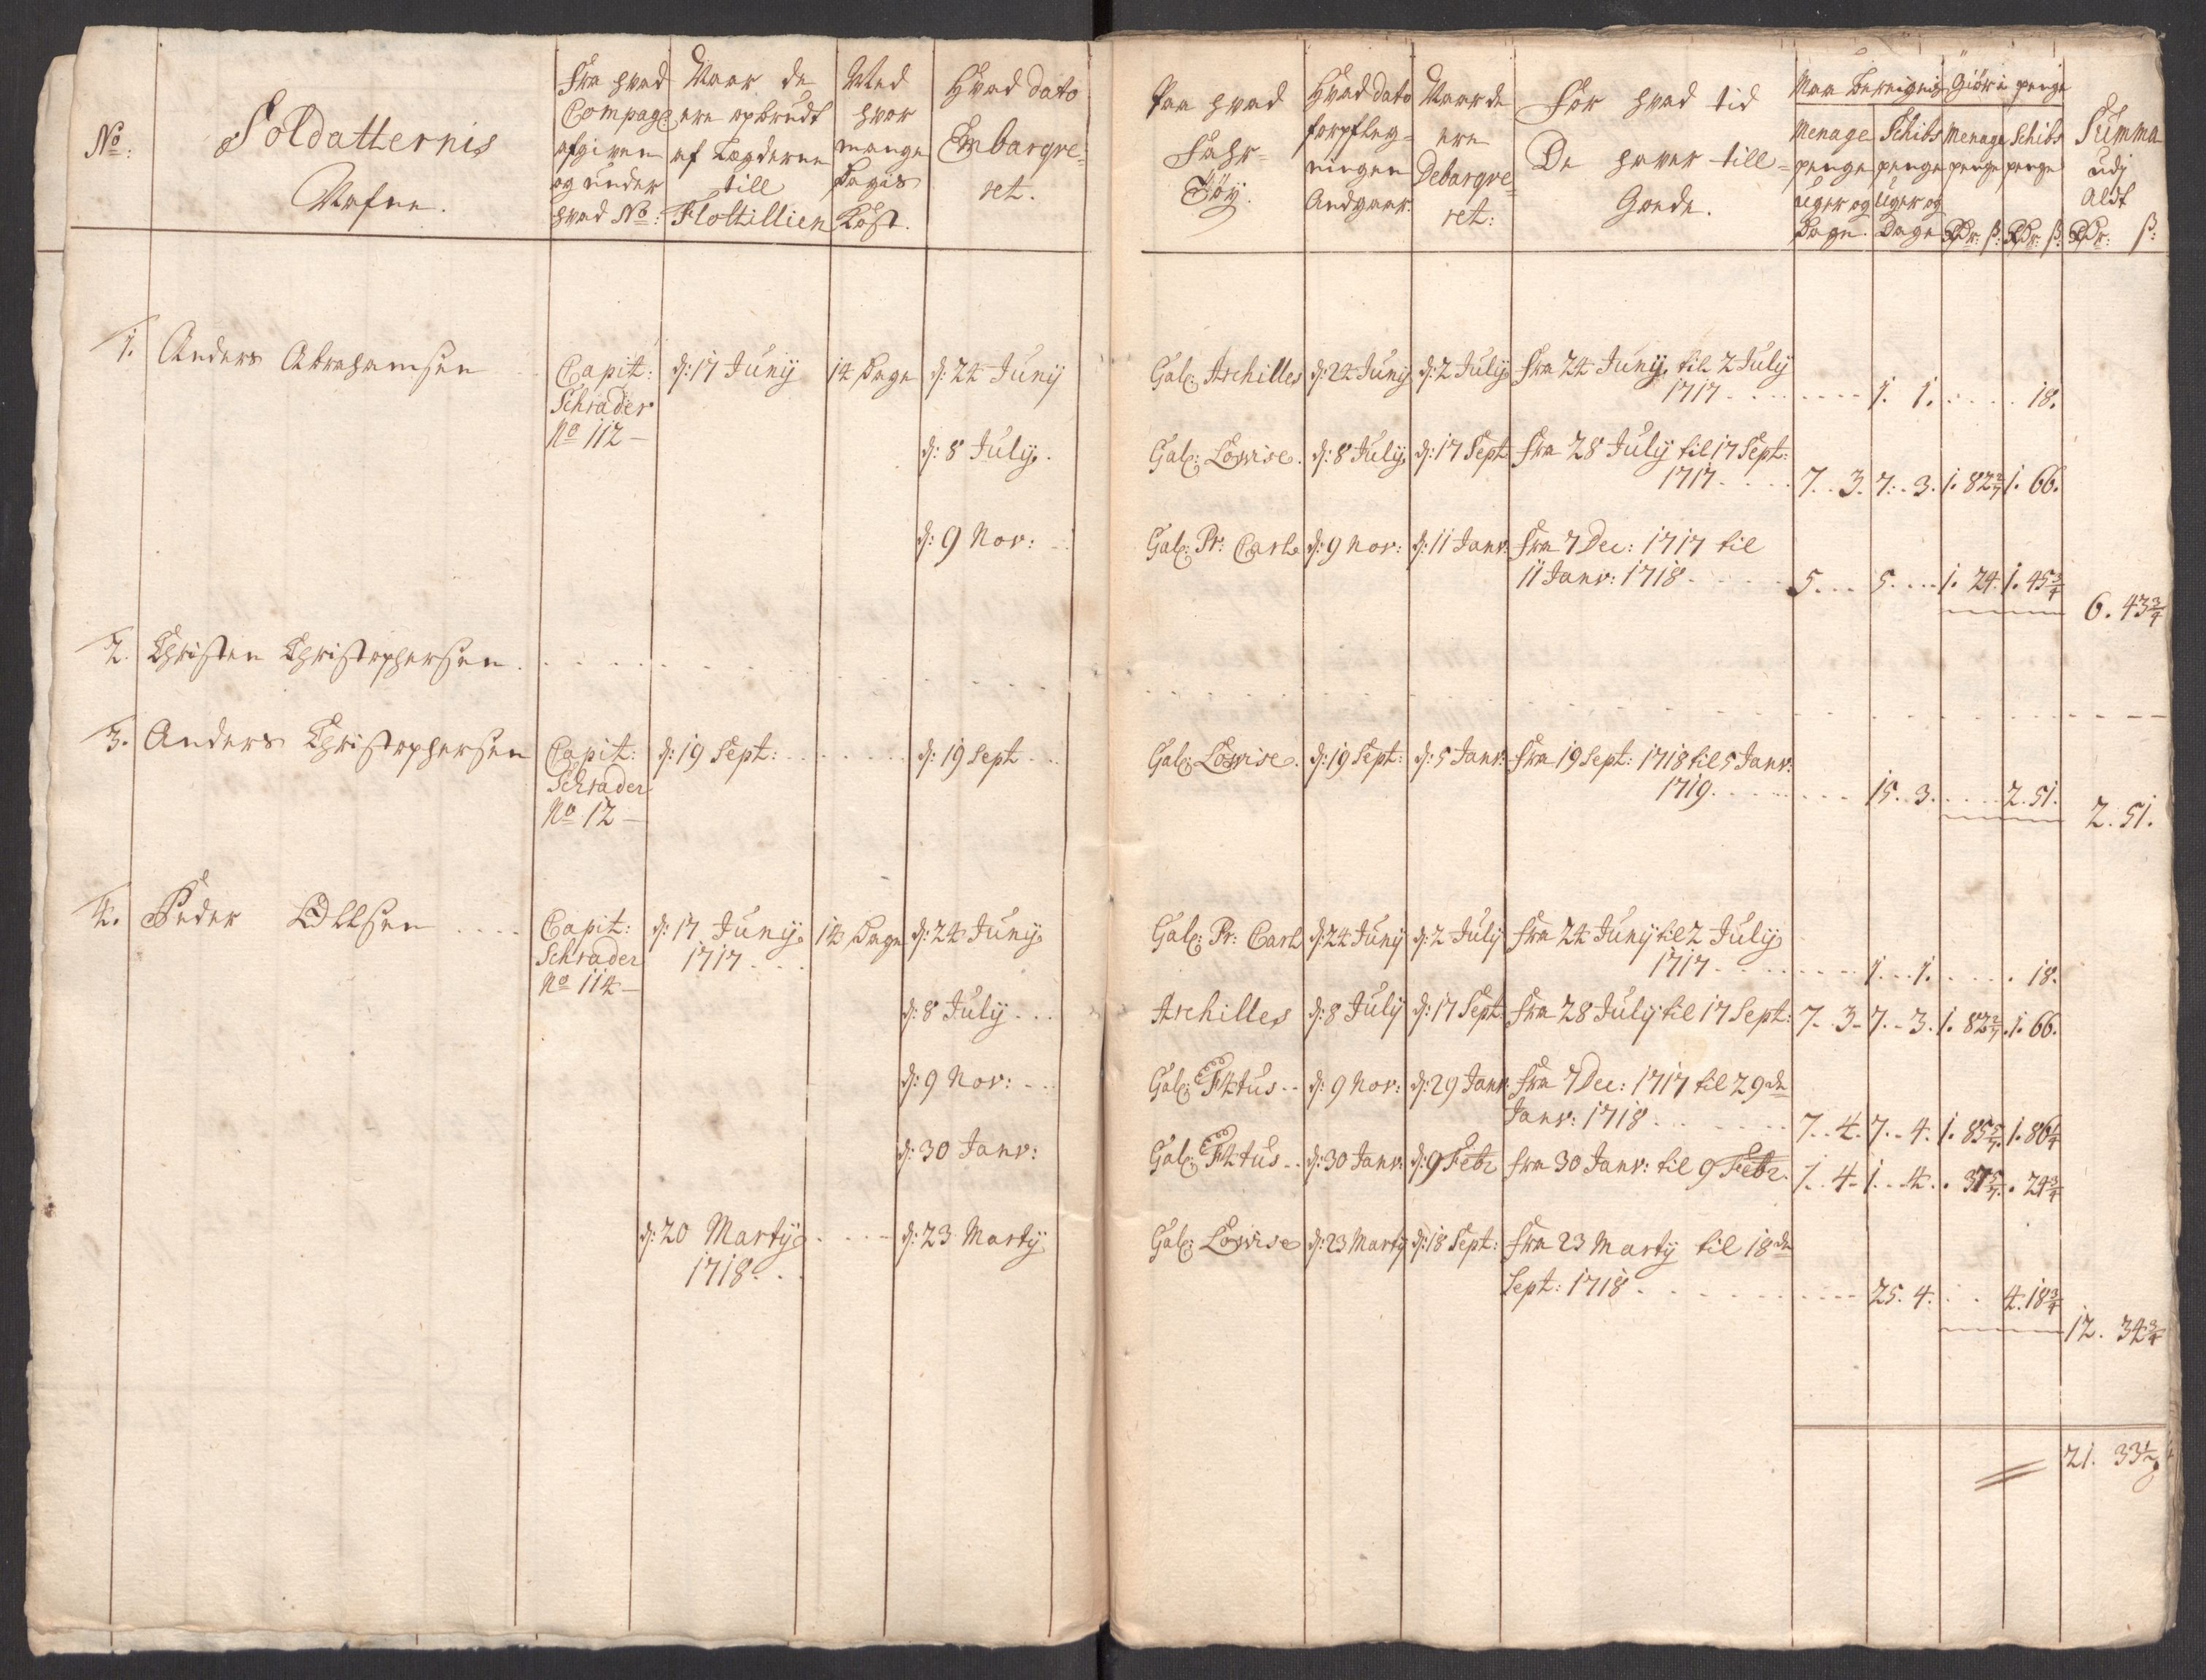 No:
Soldatternis
Nafne.
Fra hvad
Compag:
afgiven
og under
hvad No:
Naar de
ere opbrudt
af Legderne
till
Flottillien
Med
hvor
mange
Dagis
Kost.
Hvad dato
Embarqve-
ret.
Paa hvad
Fahr-
Töy.
Hvad dato
forpfleg-
ningen
Andgaar.
Naar de
ere
Debarqve-
ret:
For hvad tid
De haver till-
Gode.
Maa Bereignis
Giör i penge
Menage
penge
Uger og
Dage.
Schibs
penge
Uger og
Dage
Menage
penge
Rdr: ß:
Schibs
penge
Rdr: ß:
Summa
udj
Aldt
Rdr: ß:
1. Anders Abrahamsen
Capit:
Schrader
No 112 -
d: 17 Junij 14 Dage d: 24 Junij
Gal: Archilles d: 24 Junij d: 2 July fra 24 Junij til 2 July
1717 . . . 1. 1. . . . 18.
d: 8 July.
Gal: Lovise. d: 8 July d: 17 Sept fra 28 July til 17 Sept:
1717 . . . 7. 3. 7. 3. 1. 82 2/7 1. 66.
d: 9 Nov:
Gal: Pr: Carl d: 9 Nov: d: 11 Janv: fra 7 Dec: 1717 til
11 Janv: 1718 . . . 5. . . 5. . . 1. 24. 1. 45 3/4
6. 43 3/4
2. Christen Christophersen. . . .
3. Anders Christophersen
Capit:
Schrader
No 12 -
d: 19 Sept: . . . d: 19 Sept . .
Gal: Lovise. d: 19 Sept: d: 5 Janv: fra 19 Sept: 1718 til 5 Janv:
1719. . . . 15. 3. . . . 2. 51.
2. 51.
4. Peder Ollsen . . . .
Capit:
Schrader
No 114 -
d: 17 Junij
1717 . . .
14 Dage d: 24 Junij
Gal: Pr: Carl d: 24 Junij d: 2 July fra 24 Junij til 2 July
1717 . . . 1. . 1. . . . 18.
d: 8 July . . .
Archilles d: 8 July d: 17 Sept: fra 28 July til 17 Sept: 7. 3. 7. 3. 1. 82 2/7. 1. 66.
d: 9 Nov: . . .
Gal: d: 9 Nov: d: 29 Janv: fra 7 Dec: 1717 til 29de
Janv: 1718 . . . 7. 4. 7. 4. 1. 85 5/7. 1. 86 1/4
d: 30 Janv:
Gal: d: 30 Janv: d: 9 Febr fra 30 Janv: til 9 Febr. 1. 4. 1. 4. . 37 5/7. . 24 3/4
d: 20 Martij . . .
1718 . . .
d: 23 Martij
Gal: Lovise d: 23 Martij d: 18 Sept: fra 23 Martij til 18de
Sept: 1718 . . . 25. 4. . . 4. 18 3/4
12. 34 3/4
21. 33 1/2